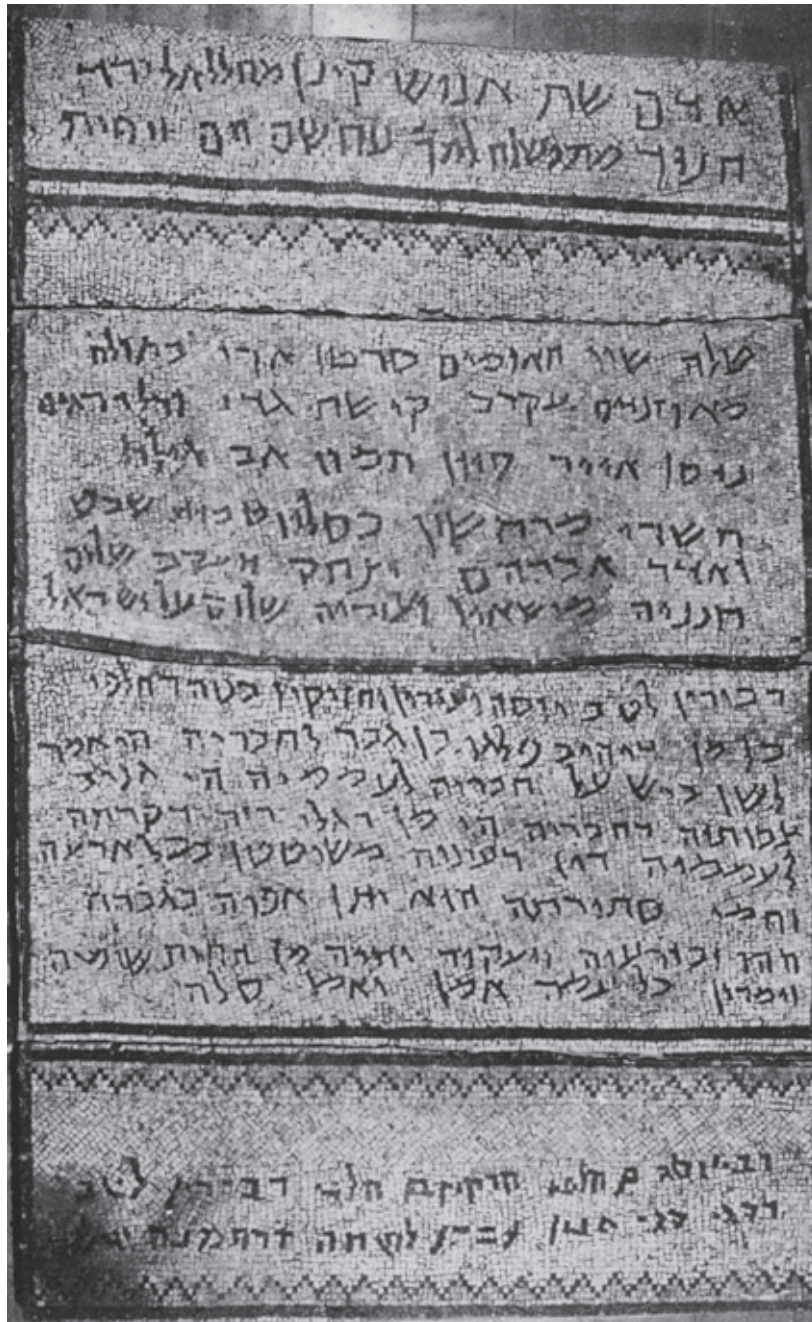 אדם שת אנוש קינן מהללאל ירד
חנוך מתושלח למך נח שם חם ויפת
טלה שור תאומים סרטן ארי בתולה
מאוזניים עקרב קישת גדי ודלי דגים
ניסן אייר סיון תמוז אב אילול
תשרי מרחשון כסליו טבית שבט
ואדר אברהם יצחק ויעקב שלום
חנניה מישאיל ועזריה שלום על ישראל
דכירין לטב יוסה ועזרון וחזיקיו בנוה דחלפי
כל מן דיהיב פלגו בן גבר לחבריה הי אמר
לשן ביש על חבריה לעממיה הי גניב
צבותיה דחבריה הי מן דגלי רזיה דקרתה
לעממיה דין דעינוה משוטטן בכל ארעה
וחמי סתירתה הוא יתן אפוה בגברה
ההו ובזרעיה ויעקור יתיה מן תחות שומיה
וימרון כל עמה אמן ואמן סלה
רבי יוסה חלפי חזקיו חלפי דכירין לטב
דסגי סגי הנון עבדו לשמה דרחמנה